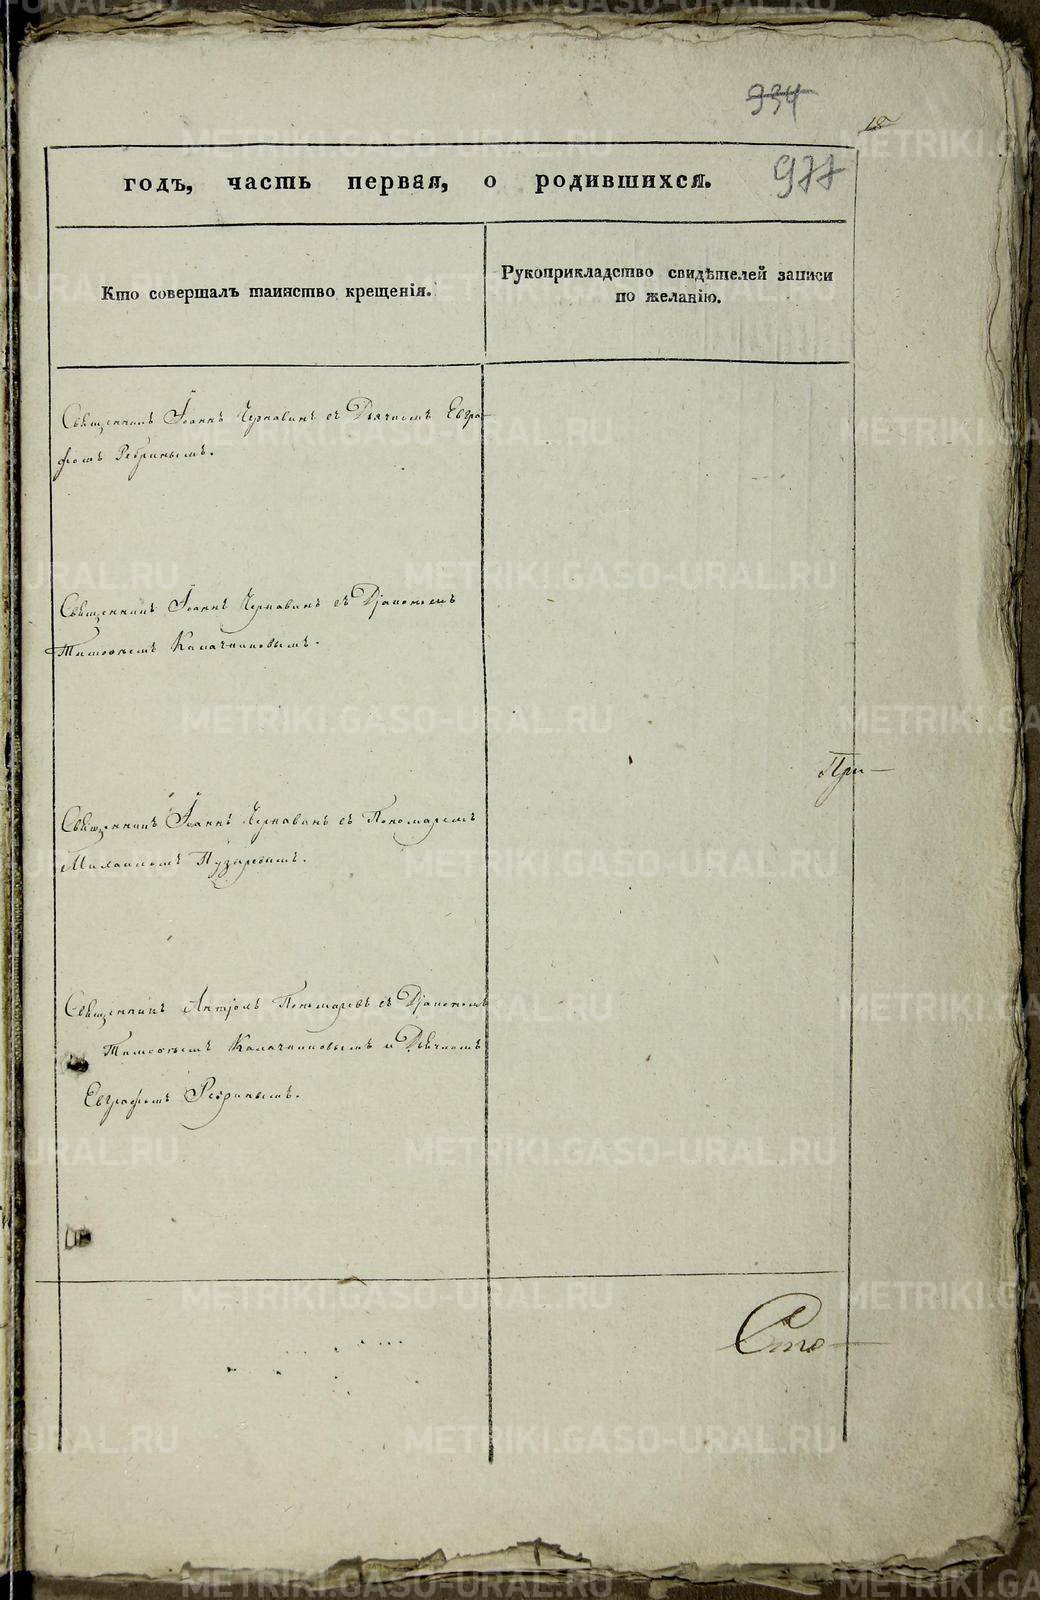 934
18
977
годъ, часть первая, о родившихся.
Кто совершалъ таинство крещенія.
Рукоприкладство свидѣтелей записи
по желанію.
Священникъ Іоаннъ Чернавинъ съ Дьячкомъ Евгра-
фомъ Ребринымъ.
Священникъ Іоаннъ Чернавинъ съ Діакономъ
Тимофеемъ Калачниковымъ.
При-
Священникъ Іоаннъ Чернавинъ съ Пономаремъ
Михаиломъ Пузыревымъ.
Священникъ Пономаревъ съ Діакономъ
Тимофеемъ Калачниковымъ и Дьячкомъ
Евграфомъ Ребринымъ.
METRIKI.GASO-URAL.RU